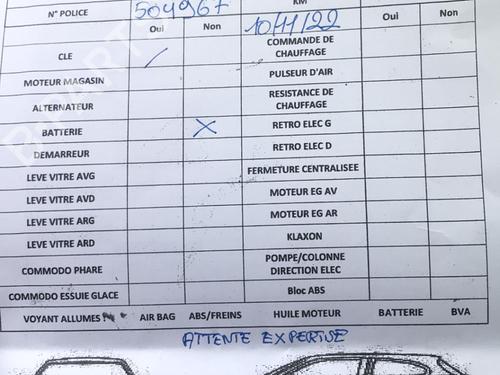 N° POLICE 504967 KM
Oui Non 10/11/22 Oui Non
CLE COMMANDE DE CHAUFFAGE
MOTEUR MAGASIN PULSEUR D'AIR
ALTERNATEUR RESISTANCE DE CHAUFFAGE
BATTERIE X RETRO ELEC G
DEMARREUR RETRO ELEC D
LEVE VITRE AVG FERMETURE CENTRALISEE
LEVE VITRE AVD MOTEUR EG AV
LEVE VITRE ARG MOTEUR EG AR
LEVE VITRE ARD KLAXON
COMMODO PHARE POMPE/COLONNE DIRECTION ELEC
COMMODO ESSUIE GLACE Bloc ABS
VOYANT ALLUMES AIR BAG ABS/FREINS HUILE MOTEUR BATTERIE BVA
ATTENTE EXPERTISE